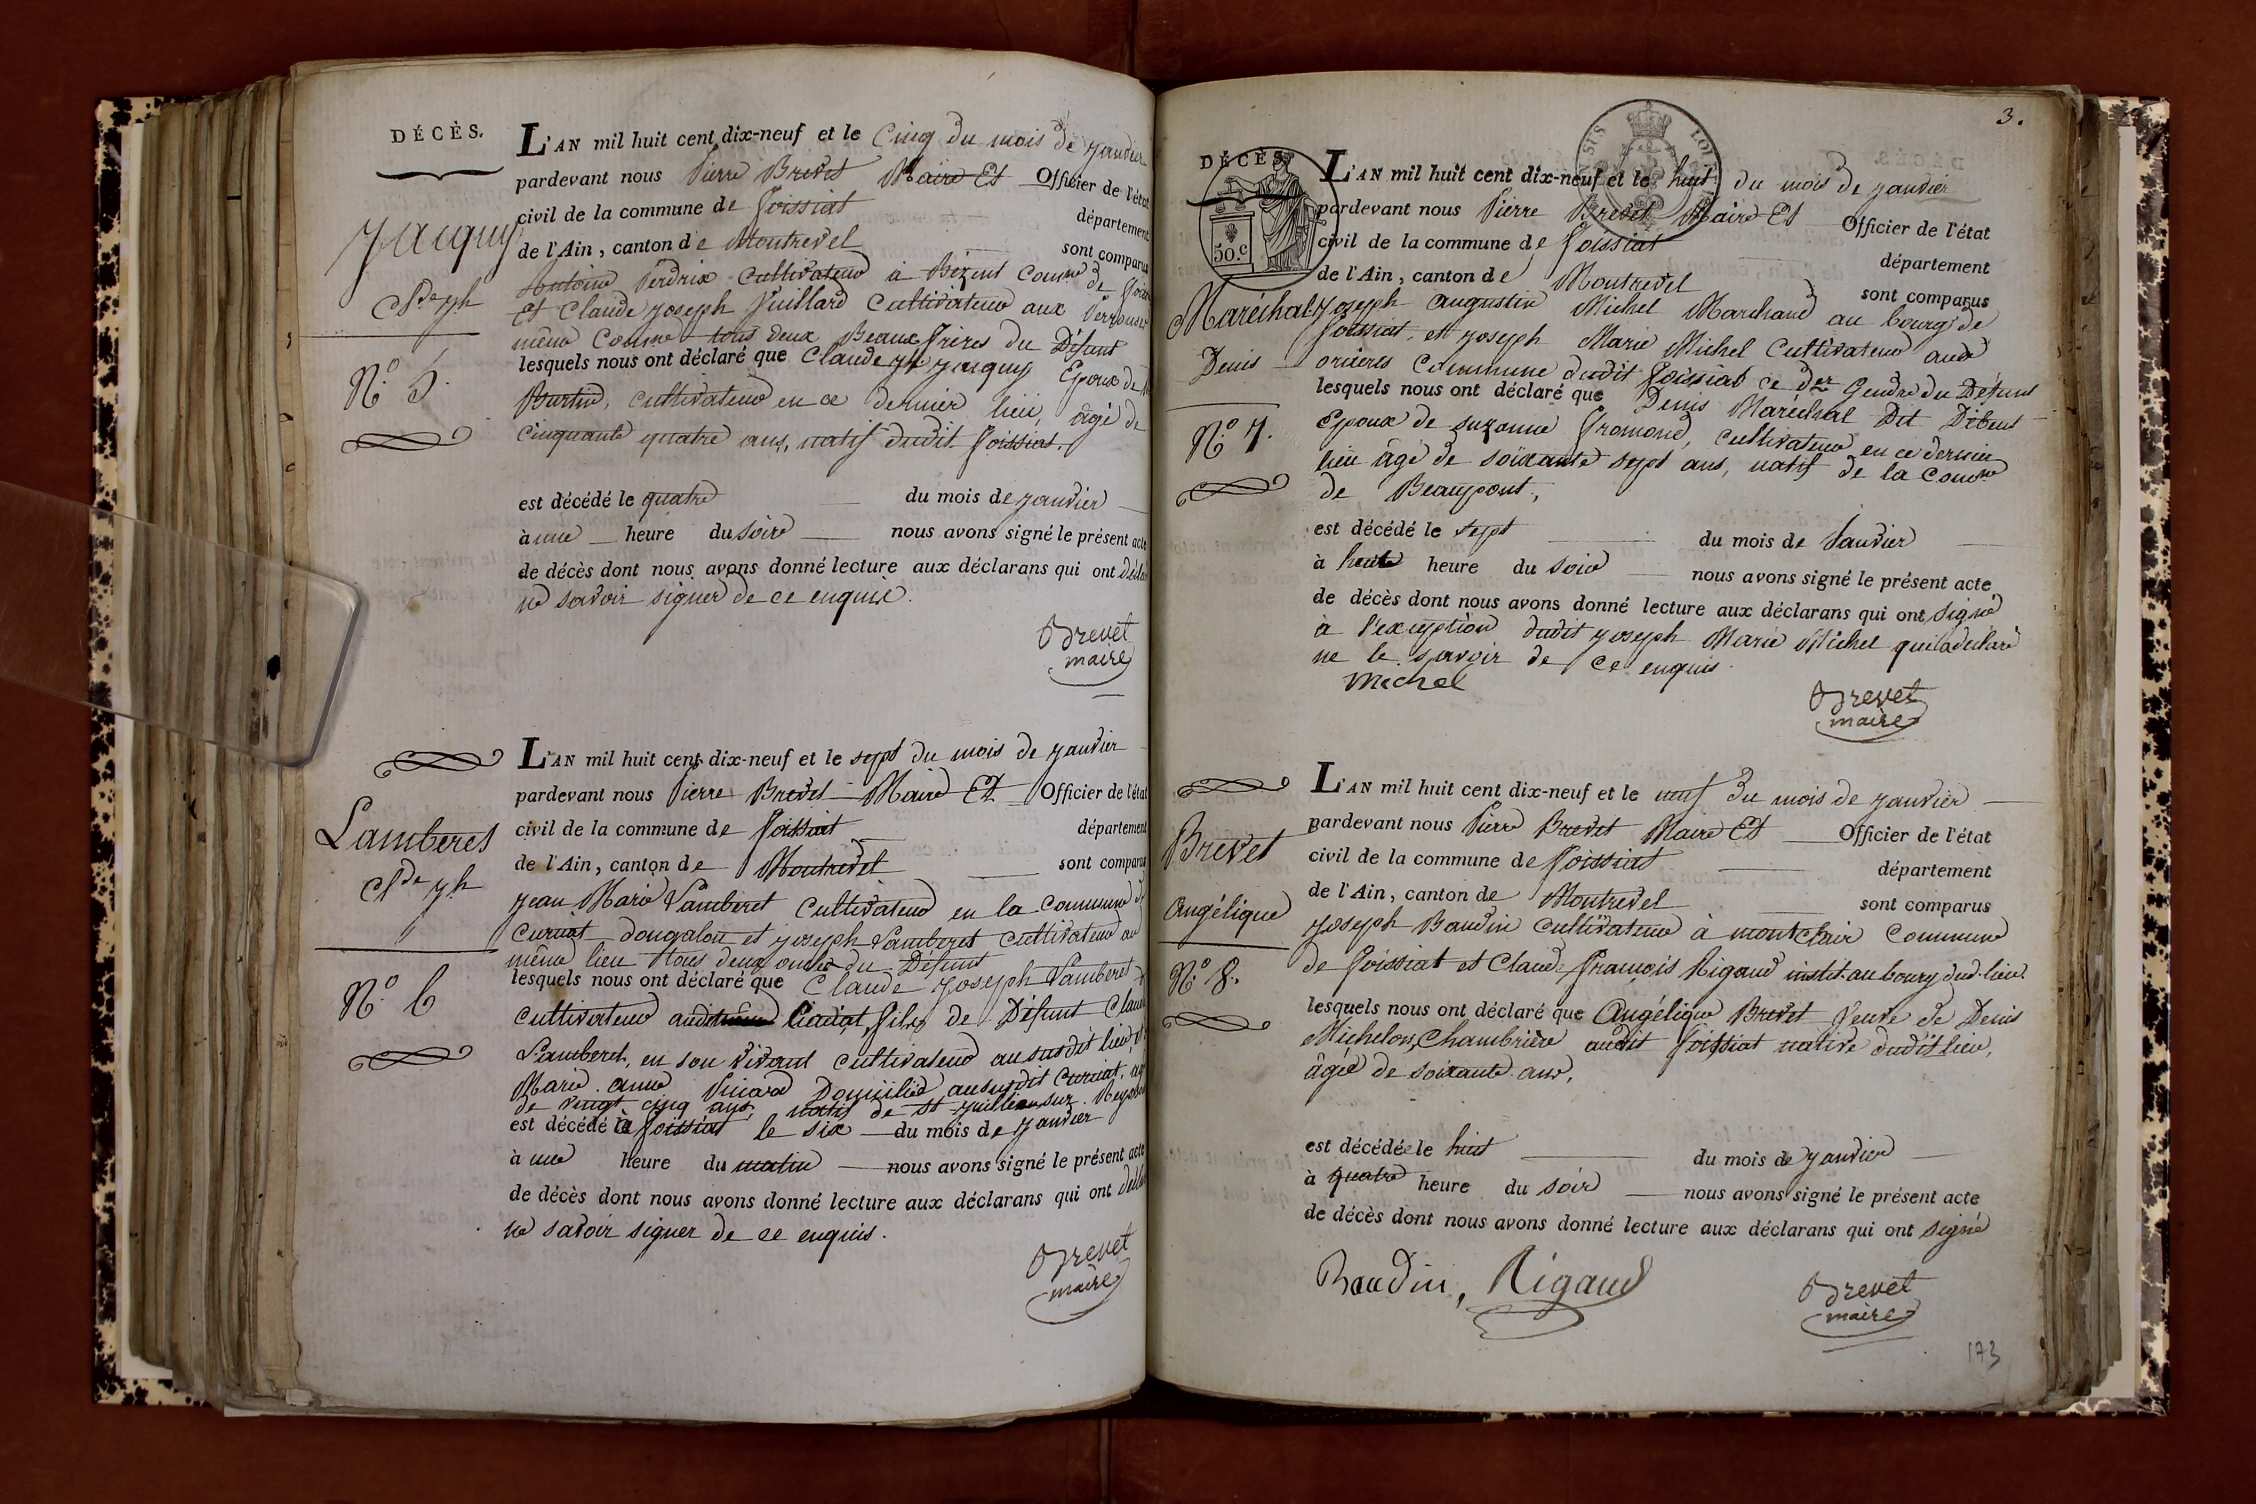 DÉCÈS.
L'AN mil huit cent dix-neuf et le Cinq du mois de janvier
pardevant nous Pierre Brevet Maire Et Officier de l'état
civil de la commune de foissiat département
de l'Ain, canton de Montrevel sont comparus
Antoine Perdrix cultivateur à Bizent Comne de
Et Claude joseph Vuillard Cultivateur aux
même Comne tous deux Beaux frères du Défunt
lesquels nous ont déclaré que Claude jh jacquy Epoux de
cultivateur en ce dernier lieu, âgé de
Cinquante quatre ans, natif dudit foissiat.
est décédé le quatre du mois de janvier
à une heure du soire nous avons signé le présent acte
de décès dont nous avons donné lecture aux déclarans qui ont
ne savoir signer de ce enquis.
Brevet
maire
jacquy
Cde jh
N.º 5.
L'AN mil huit cent dix-neuf et le sept du mois de janvier
pardevant nous Pierre Brevet Maire Et Officier de l'état
civil de la commune de foissiat département
de l'Ain, canton de Montrevel sont comparus
jean Marie Lamberet cultivateur en la commune
Curciat dongalon et joseph Lamberet cultivateur au
même lieu tous deux oncles du Défunt
lesquels nous ont déclaré que Claude joseph Lamberet
cultivateur audit fils de Défunt Claude
Lamberet, en son vivant cultivateur au susdit lieu,
Marie anne domiciliée au susdit Curciat,
de vingt cinq ans, natif de st jullien sur Reyssouze
est décédé à foissiat le six du mois de janvier
à une heure du matin nous avons signé le présent acte
de décès dont nous avons donné lecture aux déclarans qui ont
ne savoir signer de ce enquis.
Brevet
maire
Lamberet
Cde jh
N.º 6
3.
DÉCÈS.
50.c
L'AN mil huit cent dix-neuf et le huit du mois de janvier
pardevant nous Pierre Brevet Maire Et Officier de l'état
civil de la commune de foissiat département
de l'Ain, canton de Montrevel sont comparus
joseph augustin Michel Marchand au bourg de
foissiat, et joseph Marie Michel Cultivateur aux
orcieres Commune dudit foissiat ce der Gendre du Défunt
lesquels nous ont déclaré que Denis Maréchal Dit Dibent
Epoux de suzanne fromond, cultivateur en ce dernier
lieu âgé de soixante sept ans, natif de la Comne
de Beaupont,
est décédé le sept du mois de Janvier
à huit heure du soir nous avons signé le présent acte
de décès dont nous avons donné lecture aux déclarans qui ont signé
à l'exception dudit joseph Marie Michel qui a déclaré
ne le savoir de ce enquis
Michel
Brevet
maire
Maréchal
Denis
N.º 7.
L'AN mil huit cent dix-neuf et le neuf du mois de janvier
pardevant nous Pierre Brevet Maire Et Officier de l'état
civil de la commune de foissiat département
de l'Ain, canton de Montrevel sont comparus
joseph Baudin cultivateur à montclair commune
de foissiat et Claude françois Rigaud instit. au bourg dud. lieu
lesquels nous ont déclaré que Angélique Brevet veuve de Denis
Michelon, Chambrière audit foissiat native dudit lieu,
âgée de soixante ans,
est décédée le huit du mois de janvier
à quatre heure du soir nous avons signé le présent acte
de décès dont nous avons donné lecture aux déclarans qui ont signé
Baudin, Rigaud
Brevet
maire
Brevet
Angélique
N.º 8.
173